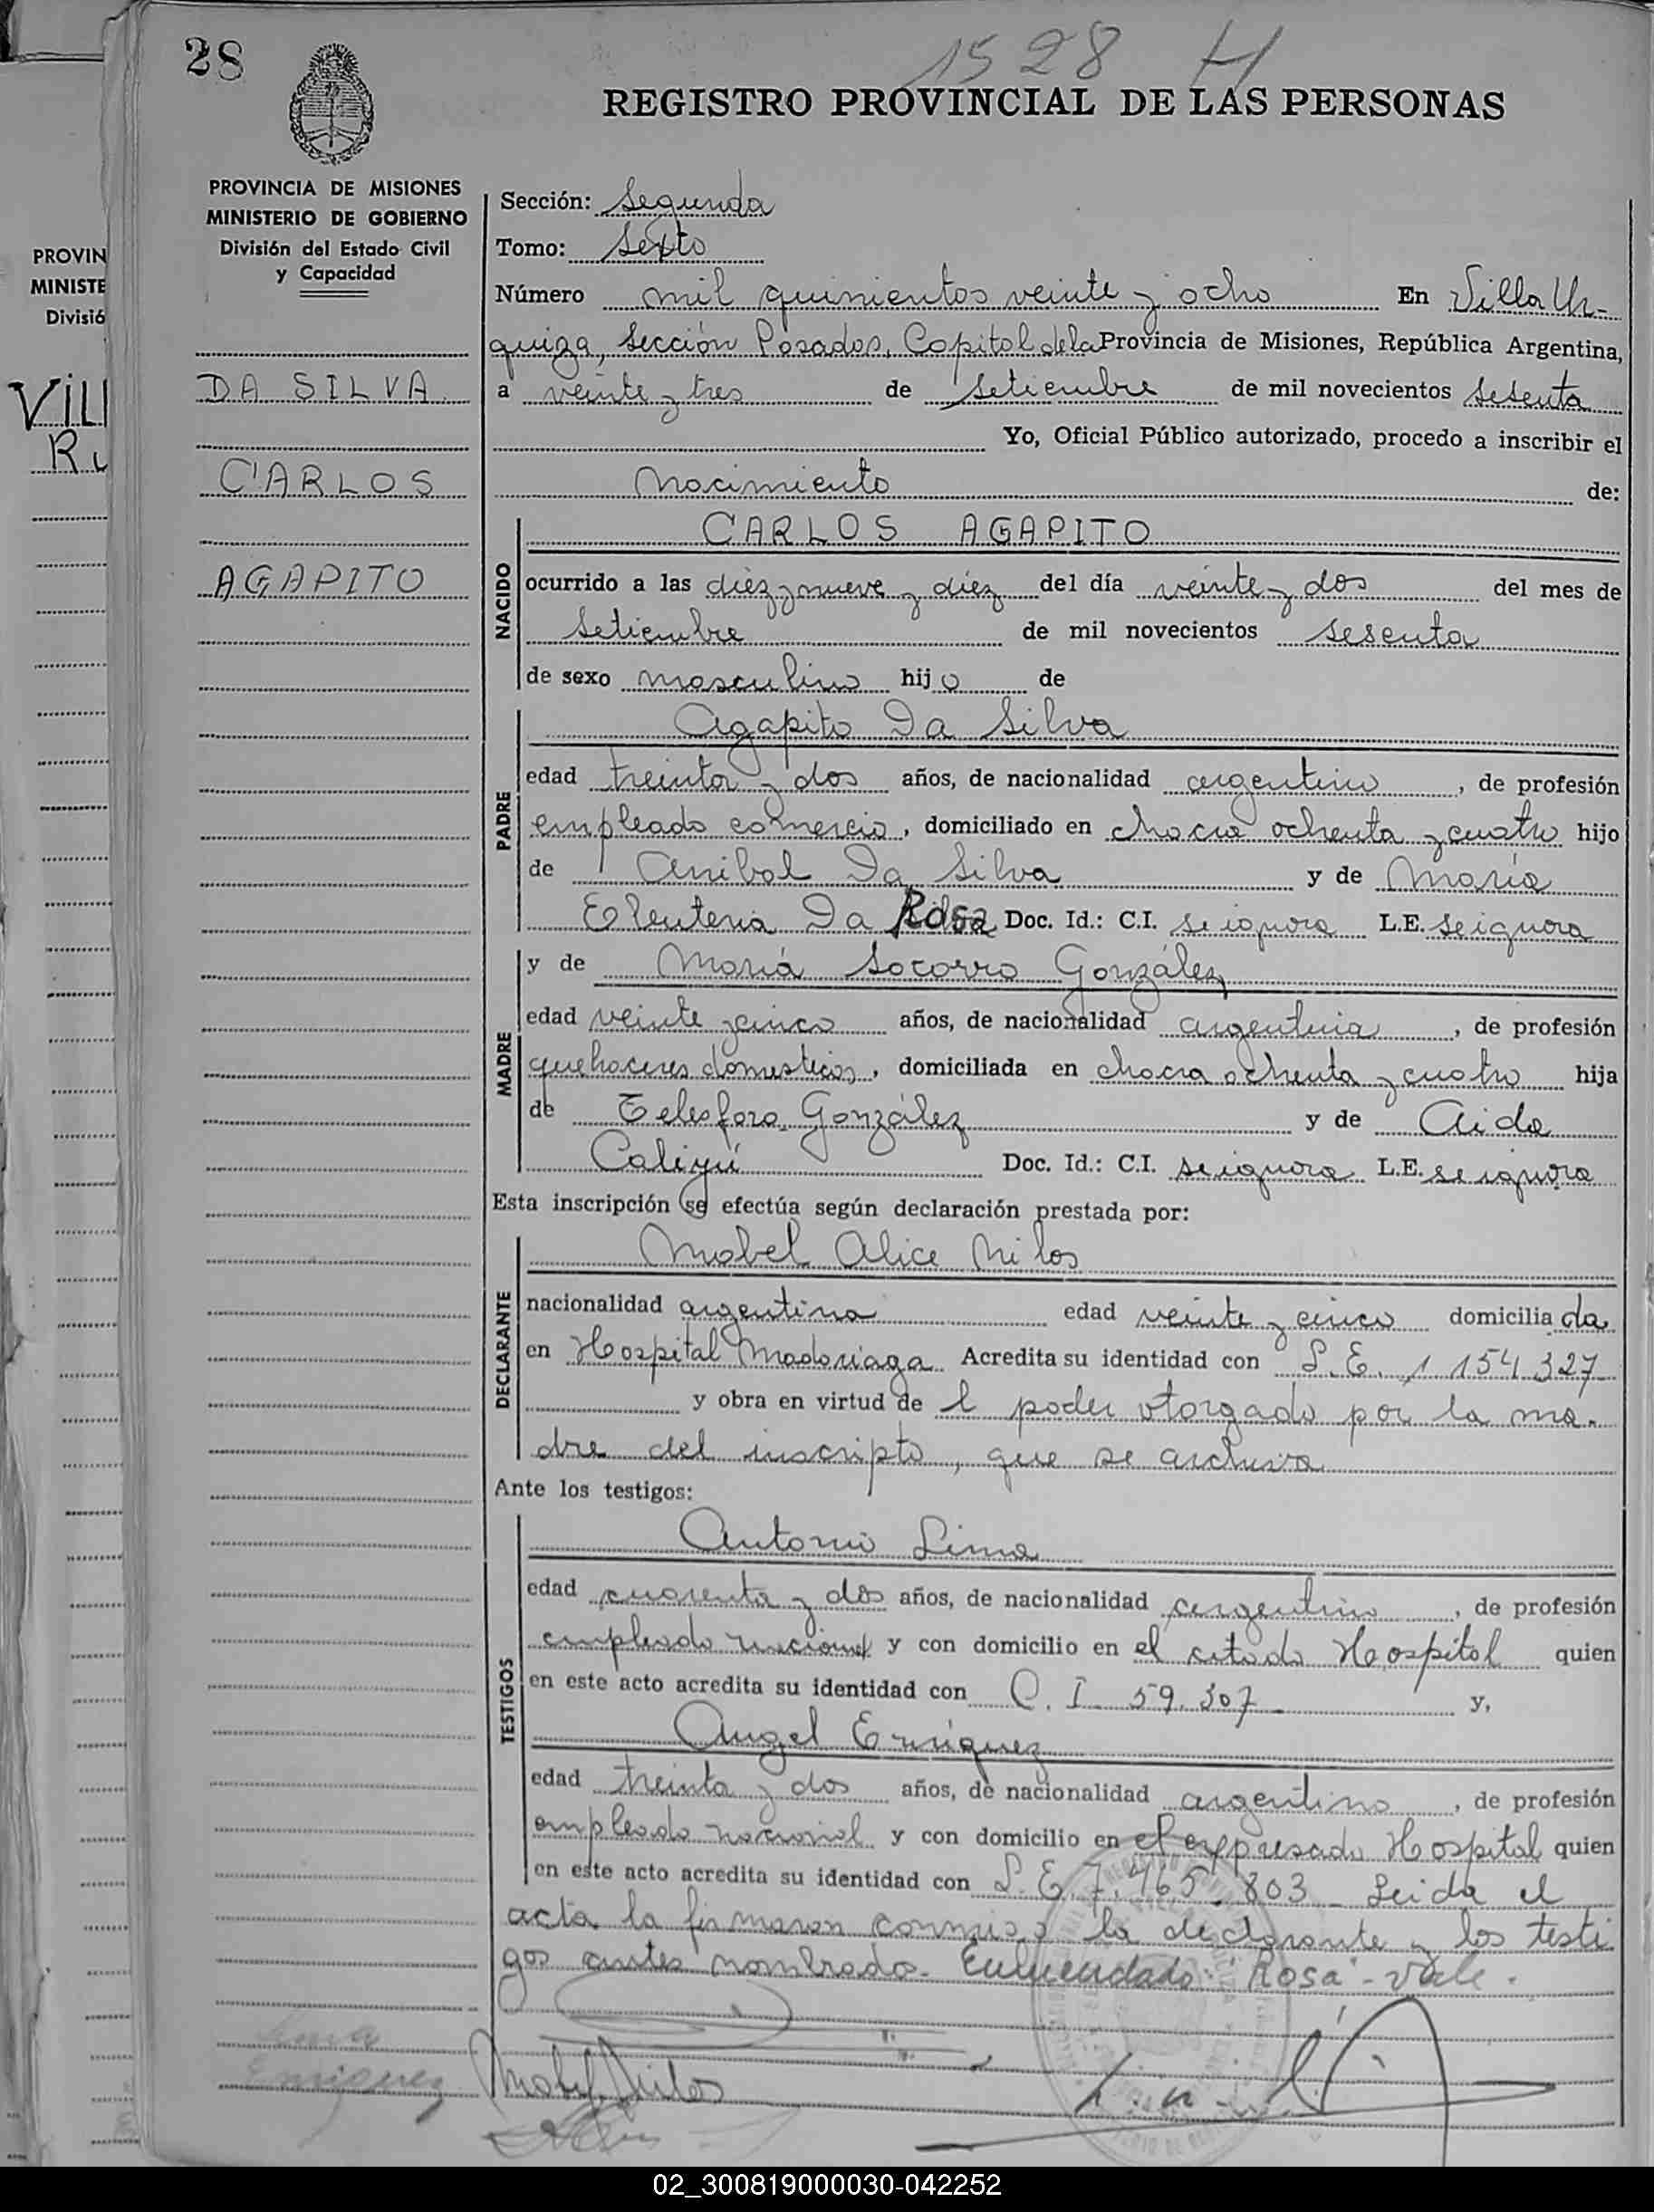 28
1528 H
REGISTRO PROVINCIAL DE LAS PERSONAS
PROVINCIA DE MISIONES
MINISTERIO DE GOBIERNO
División del Estado Civil
y Capacidad
PROVIN
MINISTE
Divisió
VILL
DA SILVA
CARLOS
AGAPITO
Sección: Segunda
Tomo: Sexto
Número mil quinientos veinte y ocho En Villa Ur-
quiza, Sección Posadas, Capital de la Provincia de Misiones, República Argentina,
a veinte y tres de setiembre de mil novecientos sesenta
Yo, Oficial Público autorizado, procedo a inscribir el
nacimiento de:
NACIDO
CARLOS AGAPITO
ocurrido a las diez y nueve y diez del día veinte y dos del mes de
setiembre de mil novecientos sesenta
de sexo masculino hijo de
PADRE
Agapito Da Silva
edad treinta y dos años, de nacionalidad argentino, de profesión
empleado comercio, domiciliado en chacra ochenta y cuatro hijo
de Anibal Da Silva y de María
Eleuteria Da Rosa Doc. Id.: C.I. se ignora L.E. se ignora
MADRE
y de María Socorro González
edad veinte y cinco años, de nacionalidad argentina, de profesión
quehaceres domesticos, domiciliada en chacra ochenta y cuatro hija
de Telesforo González y de Aida
Doc. Id.: C.I. se ignora L.E. se ignora
Esta inscripción se efectúa según declaración prestada por:
DECLARANTE
Mabel Alice Milos
nacionalidad argentina edad veinte y cinco domiciliada
en Hospital Madariaga Acredita su identidad con L.E. 1 154 327
y obra en virtud del poder otorgado por la ma-
dre del inscripto, que se archiva
Ante los testigos:
TESTIGOS
Antonio Lima
edad cuarenta y dos años, de nacionalidad argentino, de profesión
empleado nacional y con domicilio en el citado Hospital quien
en este acto acredita su identidad con C. I. 59.307 y,
Angel Enriquez
edad treinta y dos años, de nacionalidad argentino, de profesión
empleado nacional y con domicilio en el expresado Hospital quien
en este acto acredita su identidad con L.E. 7.465.803 Leida el
acta la firmaron conmigo la declarante y los testi
gos antes nombrado. Enmendado: "Rosa" - vale.
Lima
Enriquez
Mabel Milos
02_300819000030-042252